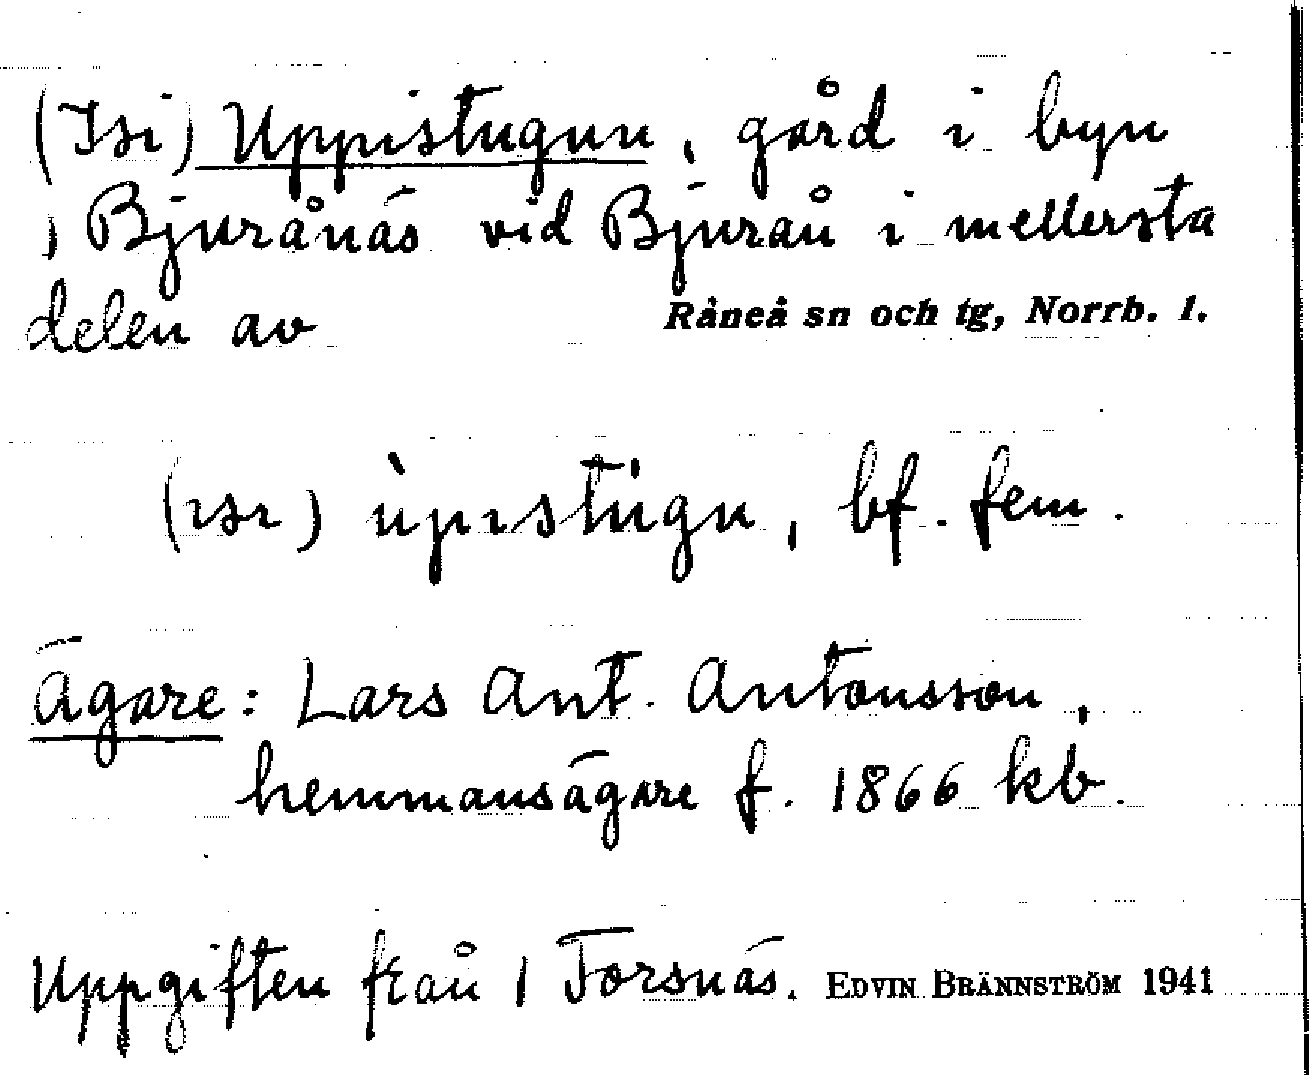 (Isi) Uppistugun, gård i byn
1 Bjurånäs vid Bjurån i mellersta
delen av Råneå sn och tg, Norrb. l.
(ɪsɪ) ùpɪstúgn, bf. fem.
Ägare: Lars Ant. Antonsson,
hemmansägare f. 1866 kb.
Uppgiften från 1 Forsnäs. EDVIN BRÄNNSTRÖM 1941